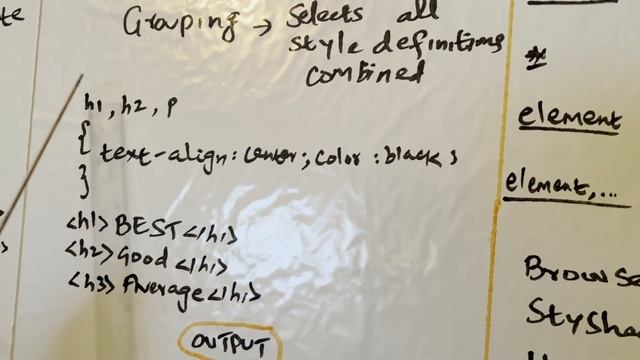 Grouping → Selects all
style definitions
combined
h1, h2, p
{
text-align: center; color: black;
}
<h1> BEST </h1>
<h2> Good </h1>
<h3> Average </h1>
OUTPUT
*
element
element,...